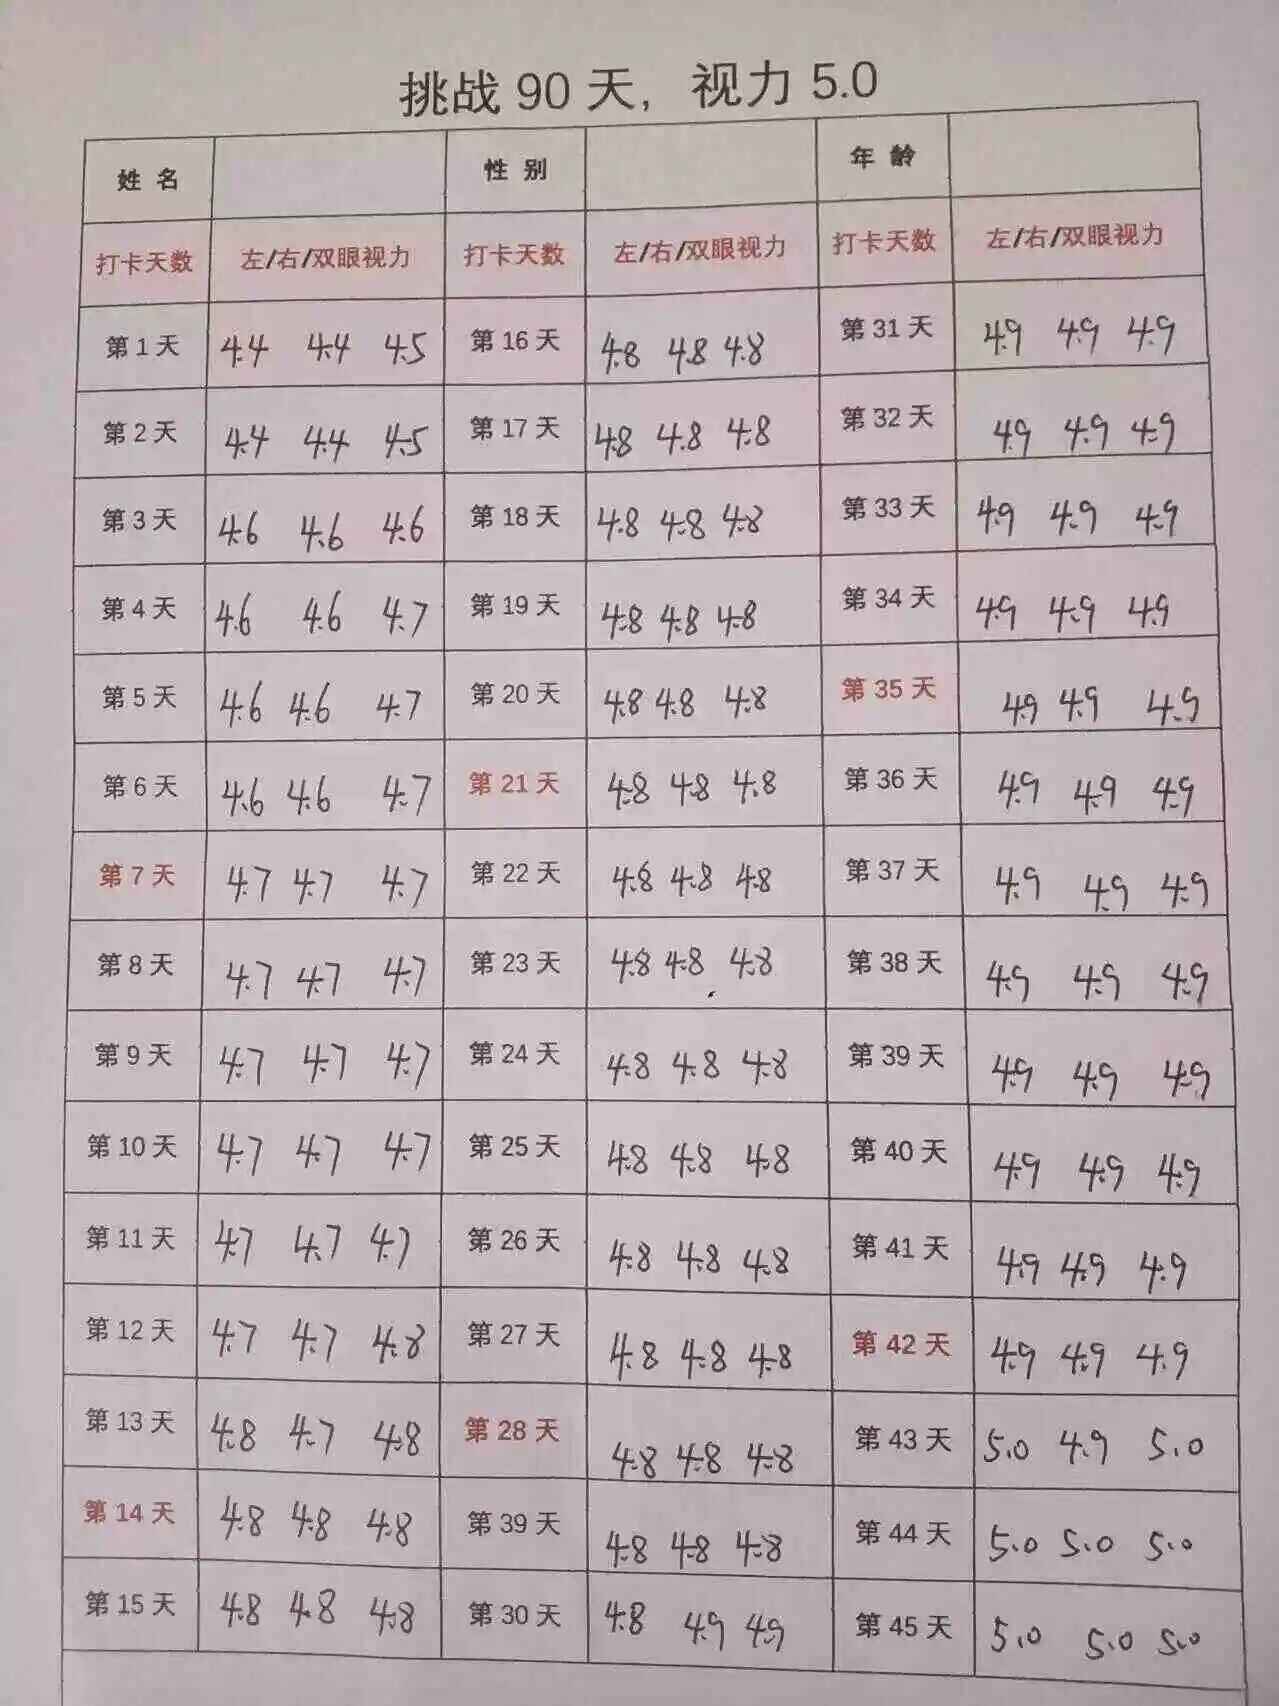 挑战 90 天，视力 5.0
姓 名 性 别 年 龄
打卡天数 左/右/双眼视力 打卡天数 左/右/双眼视力 打卡天数 左/右/双眼视力
第 1 天 4.4 4.4 4.5 第 16 天 4.8 4.8 4.8 第 31 天 4.9 4.9 4.9
第 2 天 4.4 4.4 4.5 第 17 天 4.8 4.8 4.8 第 32 天 4.9 4.9 4.9
第 3 天 4.6 4.6 4.6 第 18 天 4.8 4.8 4.8 第 33 天 4.9 4.9 4.9
第 4 天 4.6 4.6 4.7 第 19 天 4.8 4.8 4.8 第 34 天 4.9 4.9 4.9
第 5 天 4.6 4.6 4.7 第 20 天 4.8 4.8 4.8 第 35 天 4.9 4.9 4.9
第 6 天 4.6 4.6 4.7 第 21 天 4.8 4.8 4.8 第 36 天 4.9 4.9 4.9
第 7 天 4.7 4.7 4.7 第 22 天 4.8 4.8 4.8 第 37 天 4.9 4.9 4.9
第 8 天 4.7 4.7 4.7 第 23 天 4.8 4.8 4.8 第 38 天 4.9 4.9 4.9
第 9 天 4.7 4.7 4.7 第 24 天 4.8 4.8 4.8 第 39 天 4.9 4.9 4.9
第 10 天 4.7 4.7 4.7 第 25 天 4.8 4.8 4.8 第 40 天 4.9 4.9 4.9
第 11 天 4.7 4.7 4.7 第 26 天 4.8 4.8 4.8 第 41 天 4.9 4.9 4.9
第 12 天 4.7 4.7 4.8 第 27 天 4.8 4.8 4.8 第 42 天 4.9 4.9 4.9
第 13 天 4.8 4.7 4.8 第 28 天 4.8 4.8 4.8 第 43 天 5.0 4.9 5.0
第 14 天 4.8 4.8 4.8 第 39 天 4.8 4.8 4.8 第 44 天 5.0 5.0 5.0
第 15 天 4.8 4.8 4.8 第 30 天 4.8 4.9 4.9 第 45 天 5.0 5.0 5.0